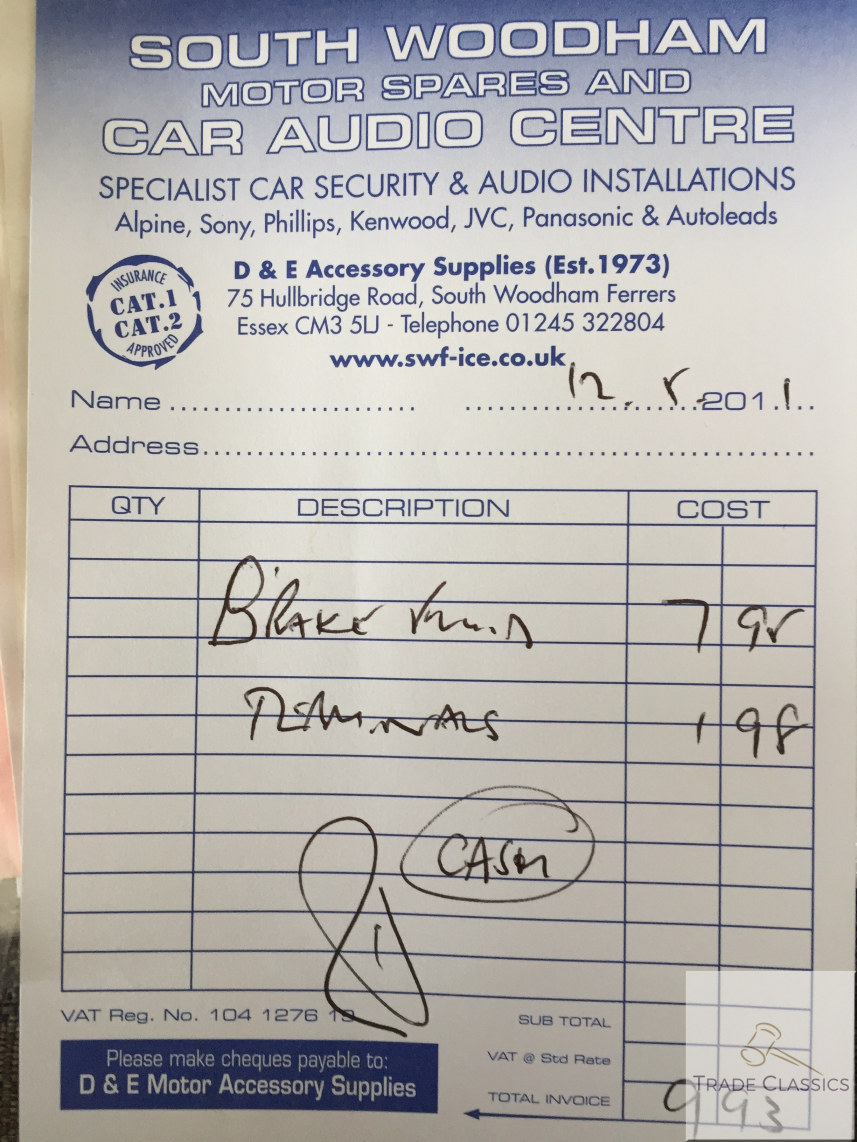 SOUTH WOODHAM
MOTOR SPARES AND
CAR AUDIO CENTRE
SPECIALIST CAR SECURITY & AUDIO INSTALLATIONS
Alpine, Sony, Phillips, Kenwood, JVC, Panasonic & Autoleads
INSURANCE
CAT.1
CAT.2
APPROVED
D & E Accessory Supplies (Est.1973)
75 Hullbridge Road, South Woodham Ferrers
Essex CM3 5LJ - Telephone 01245 322804
www.swf-ice.co.uk
Name 12. 5. 2011
Address
QTY DESCRIPTION COST
BRAKE Fluid 7 95
TERMINALS 1 98
CASH
VAT Reg. No. 104 1276 19
SUB TOTAL
VAT @ Std Rate
TOTAL INVOICE 9 93
Please make cheques payable to:
D & E Motor Accessory Supplies
TRADE CLASSICS